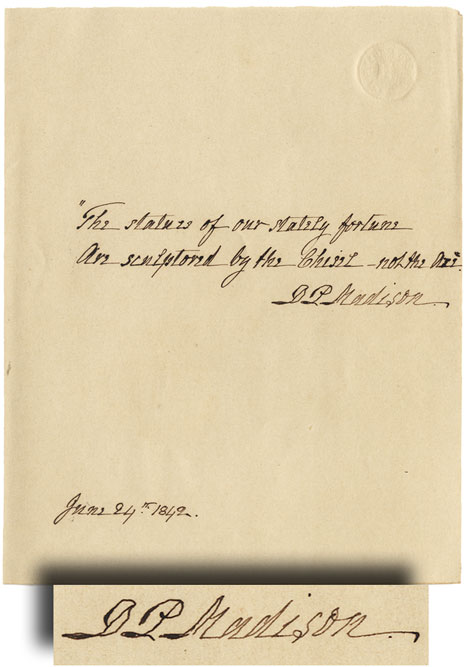 "The statues of our stately fortune
Are sculptored by the Chisel - not the Axe"
D P Madison.
June 24th 1842.
D P Madison.